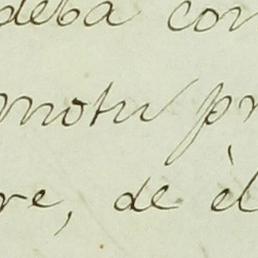 deba con
motu pr
re, de èl